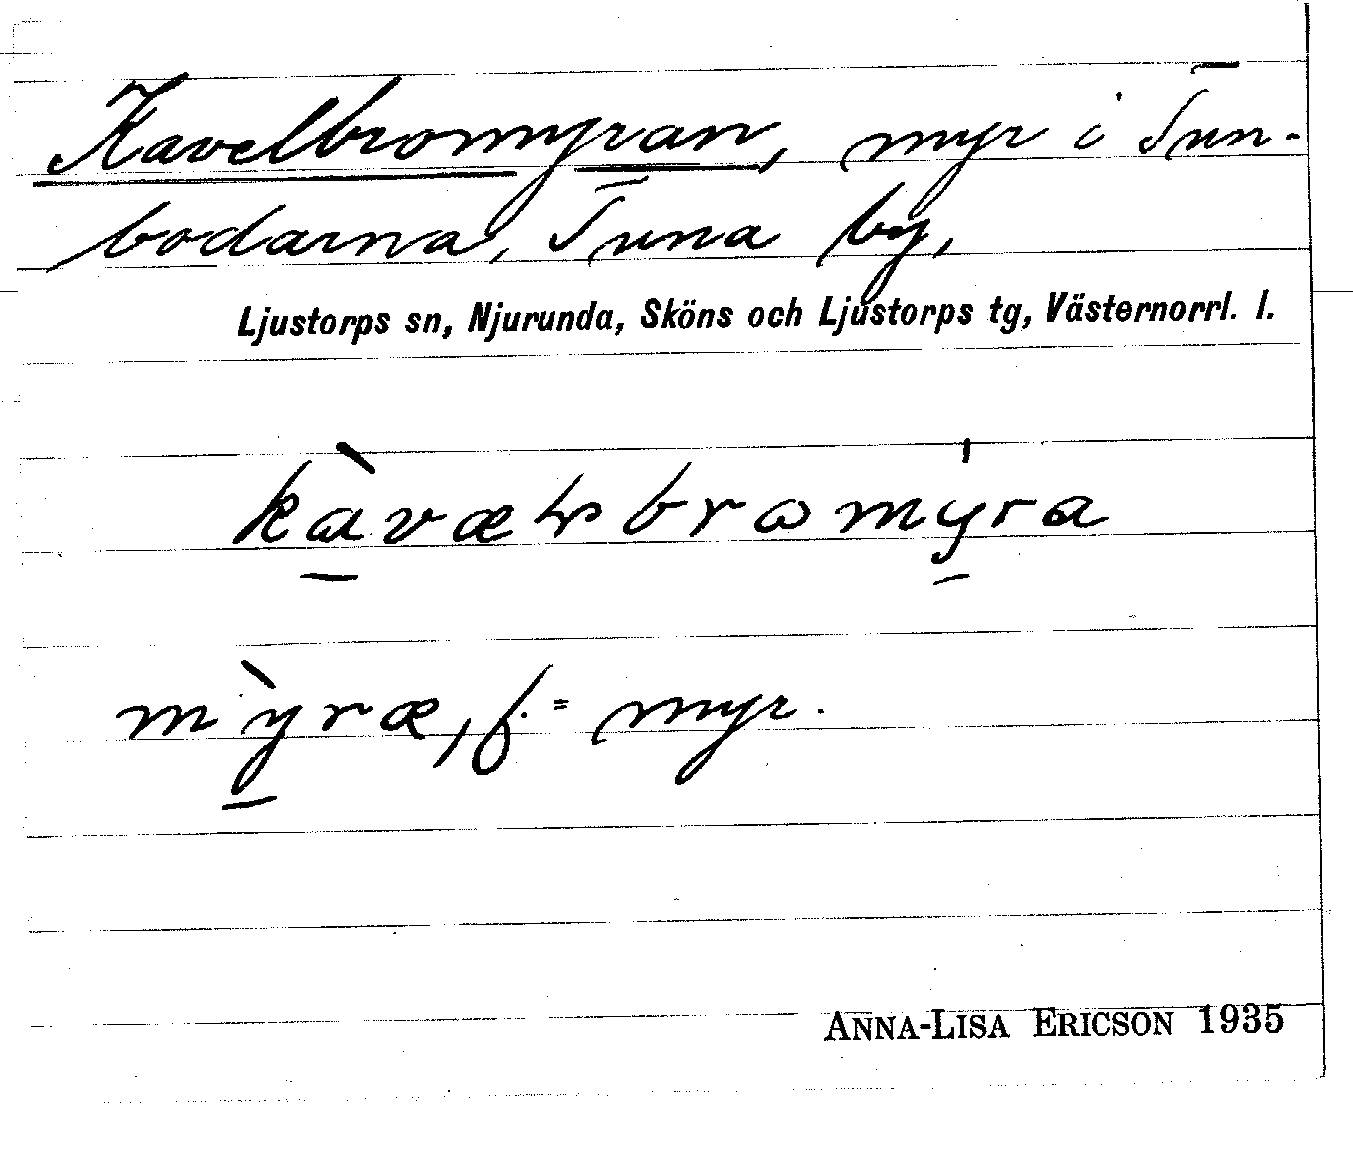 Kavelbromyran, myr i Tun-
bodarna, Tuna by,
Ljustorps sn, Njurunda, Sköns och Ljustorps tg, Västernorrl. l.
myræ, f. = myr.
ANNA-LISA ERICSON 1935